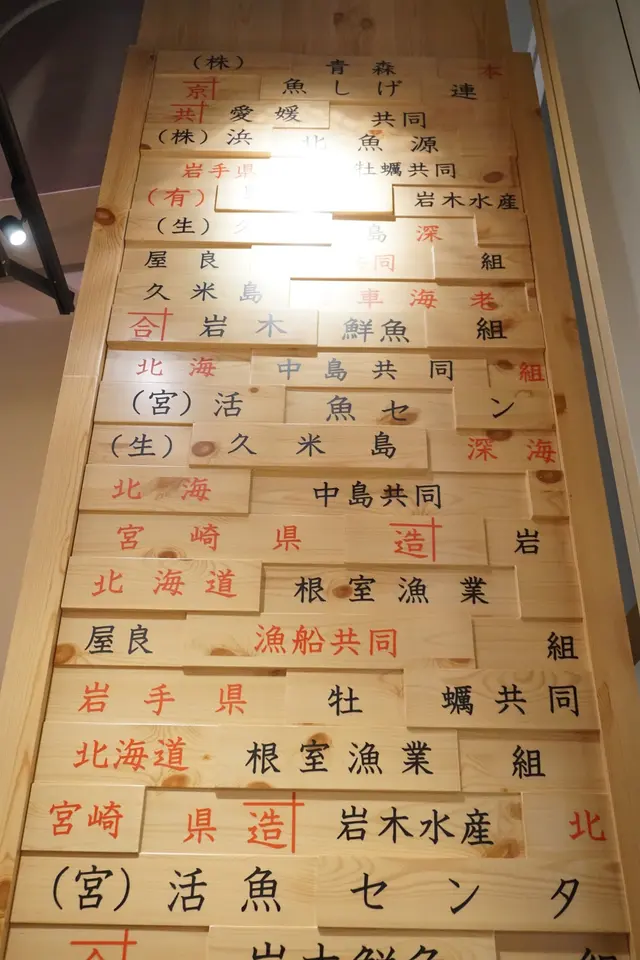 (株) 青森 本
京 魚しげ 連
共 愛媛 共同
(株) 浜 北魚源
岩手県 牡蠣共同
(有) 岩木水産
(生) 島 深
屋良 同 組
久米島 車海老
合 岩木 鮮魚 組
北海 中島共同 組
(宮) 活 魚セン
(生) 久米島 深海
北海 中島共同
宮崎県 造 岩
北海道 根室漁業
屋良 漁船共同 組
岩手県 牡蠣共同
北海道 根室漁業 組
宮崎県 造 岩木水産 北
(宮) 活魚 センタ
合 岩木鮮魚 組